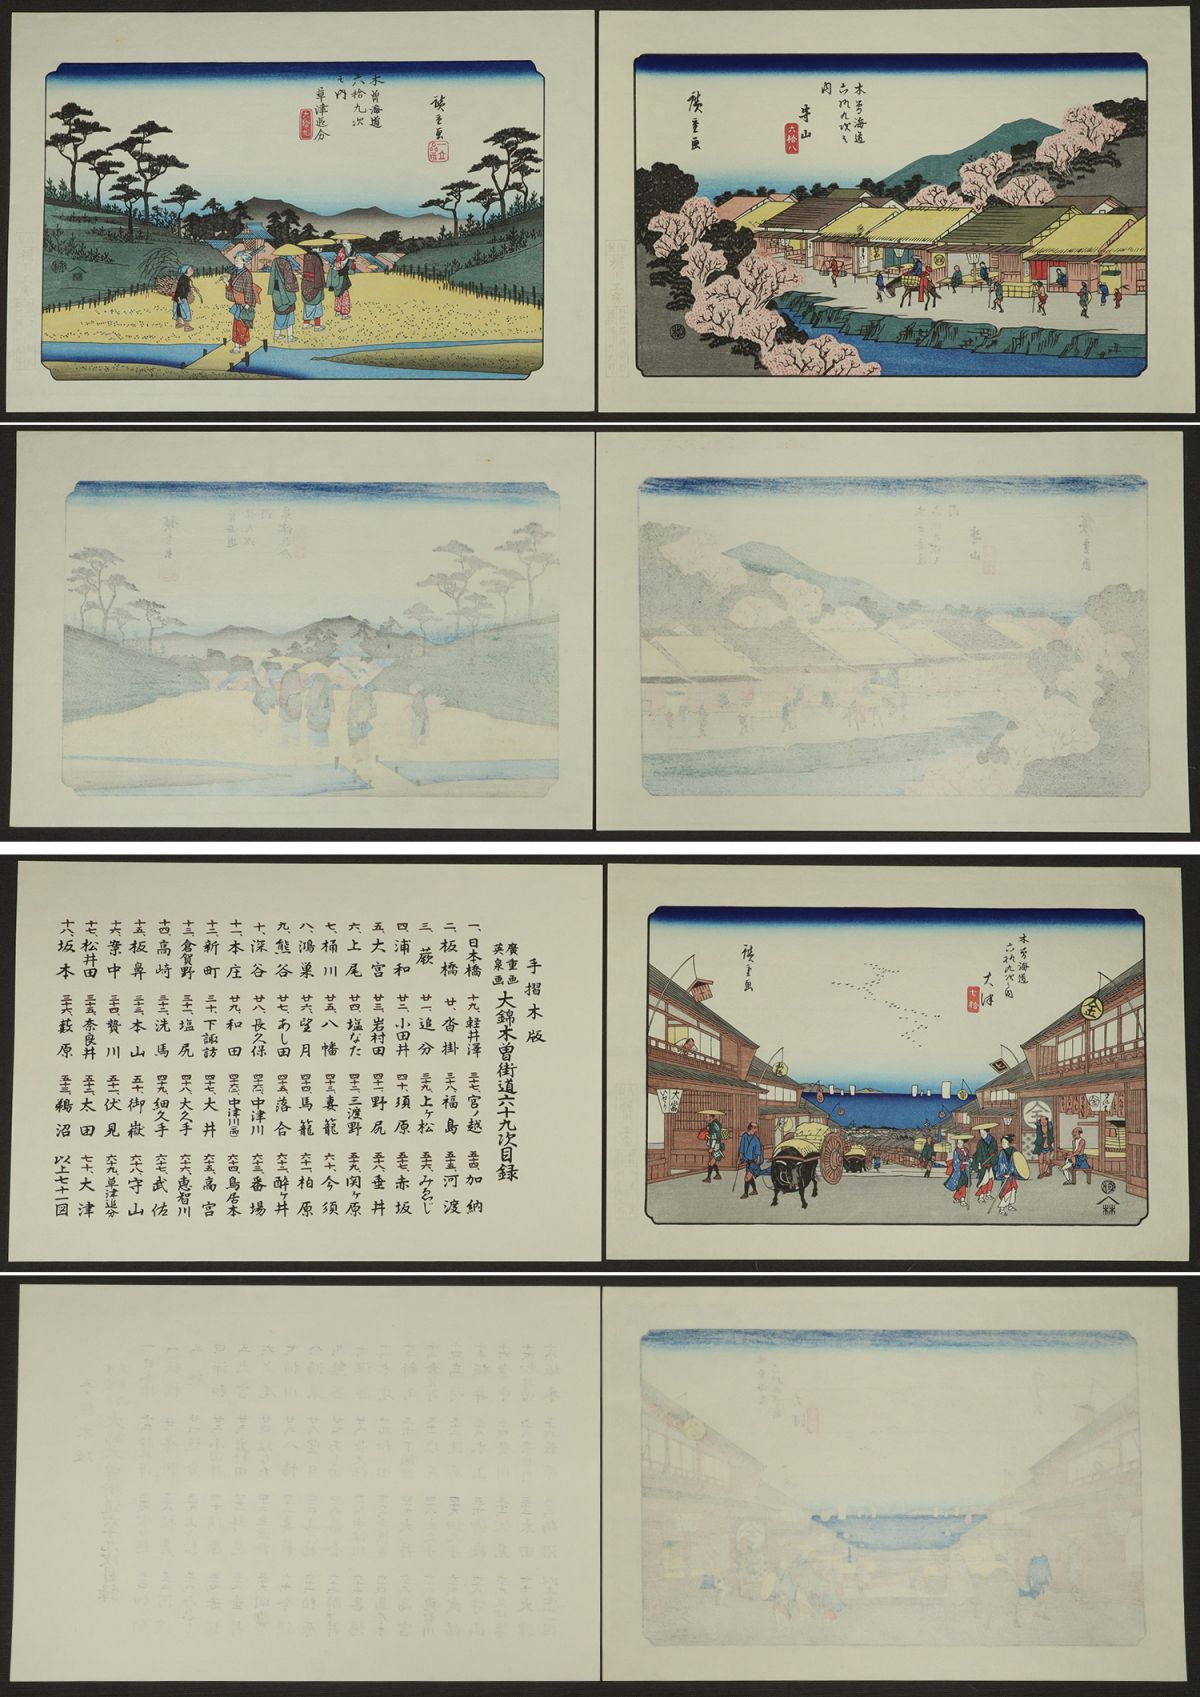 木曽海道
六拾九次
之内
草津追分
廣重画
一立
木曽海道
六拾九次之
内
守山
六拾八
廣重画
手摺木版
廣重画
英泉画
大錦木曽街道六十九次目録
一、日本橋
二、板橋
三、蕨
四、浦和
五、大宮
六、上尾
七、桶川
八、鴻巣
九、熊谷
十、深谷
十一、本庄
十二、新町
十三、倉賀野
十四、高崎
十五、板鼻
十六、案中
十七、松井田
十八、坂本
十九、軽井澤
廿、沓掛
廿一、追分
廿二、小田井
廿三、岩村田
廿四、塩なた
廿五、八幡
廿六、望月
廿七、あし田
廿八、長久保
廿九、和田
三十、下諏訪
三十一、塩尻
三十二、洗馬
三十三、本山
三十四、贄川
三十五、奈良井
三十六、藪原
三十七、宮ノ越
三十八、福島
三十九、上ヶ松
四十、須原
四十一、野尻
四十二、三渡野
四十三、妻籠
四十四、馬籠
四十五、落合
四十六、中津川
四十六、中津川雨
四十七、大井
四十八、大久手
四十九、細久手
五十、御嶽
五十一、伏見
五十二、太田
五十三、鵜沼
五十四、加納
五十五、河渡
五十六、みゑじ
五十七、赤坂
五十八、垂井
五十九、関ヶ原
六十、今須
六十一、柏原
六十二、醉ヶ井
六十三、番場
六十四、鳥居本
六十五、高宮
六十六、恵智川
六十七、武佐
六十八、守山
六十九、草津追分
七十、大津
以上七十一図
木曽海道
六拾九次之内
大津
七拾
廣重画
金
大當
林